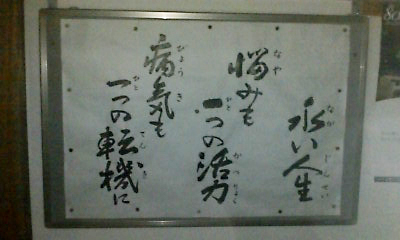 永い人生
悩みも
一つの活力
病気も
一つの転機に